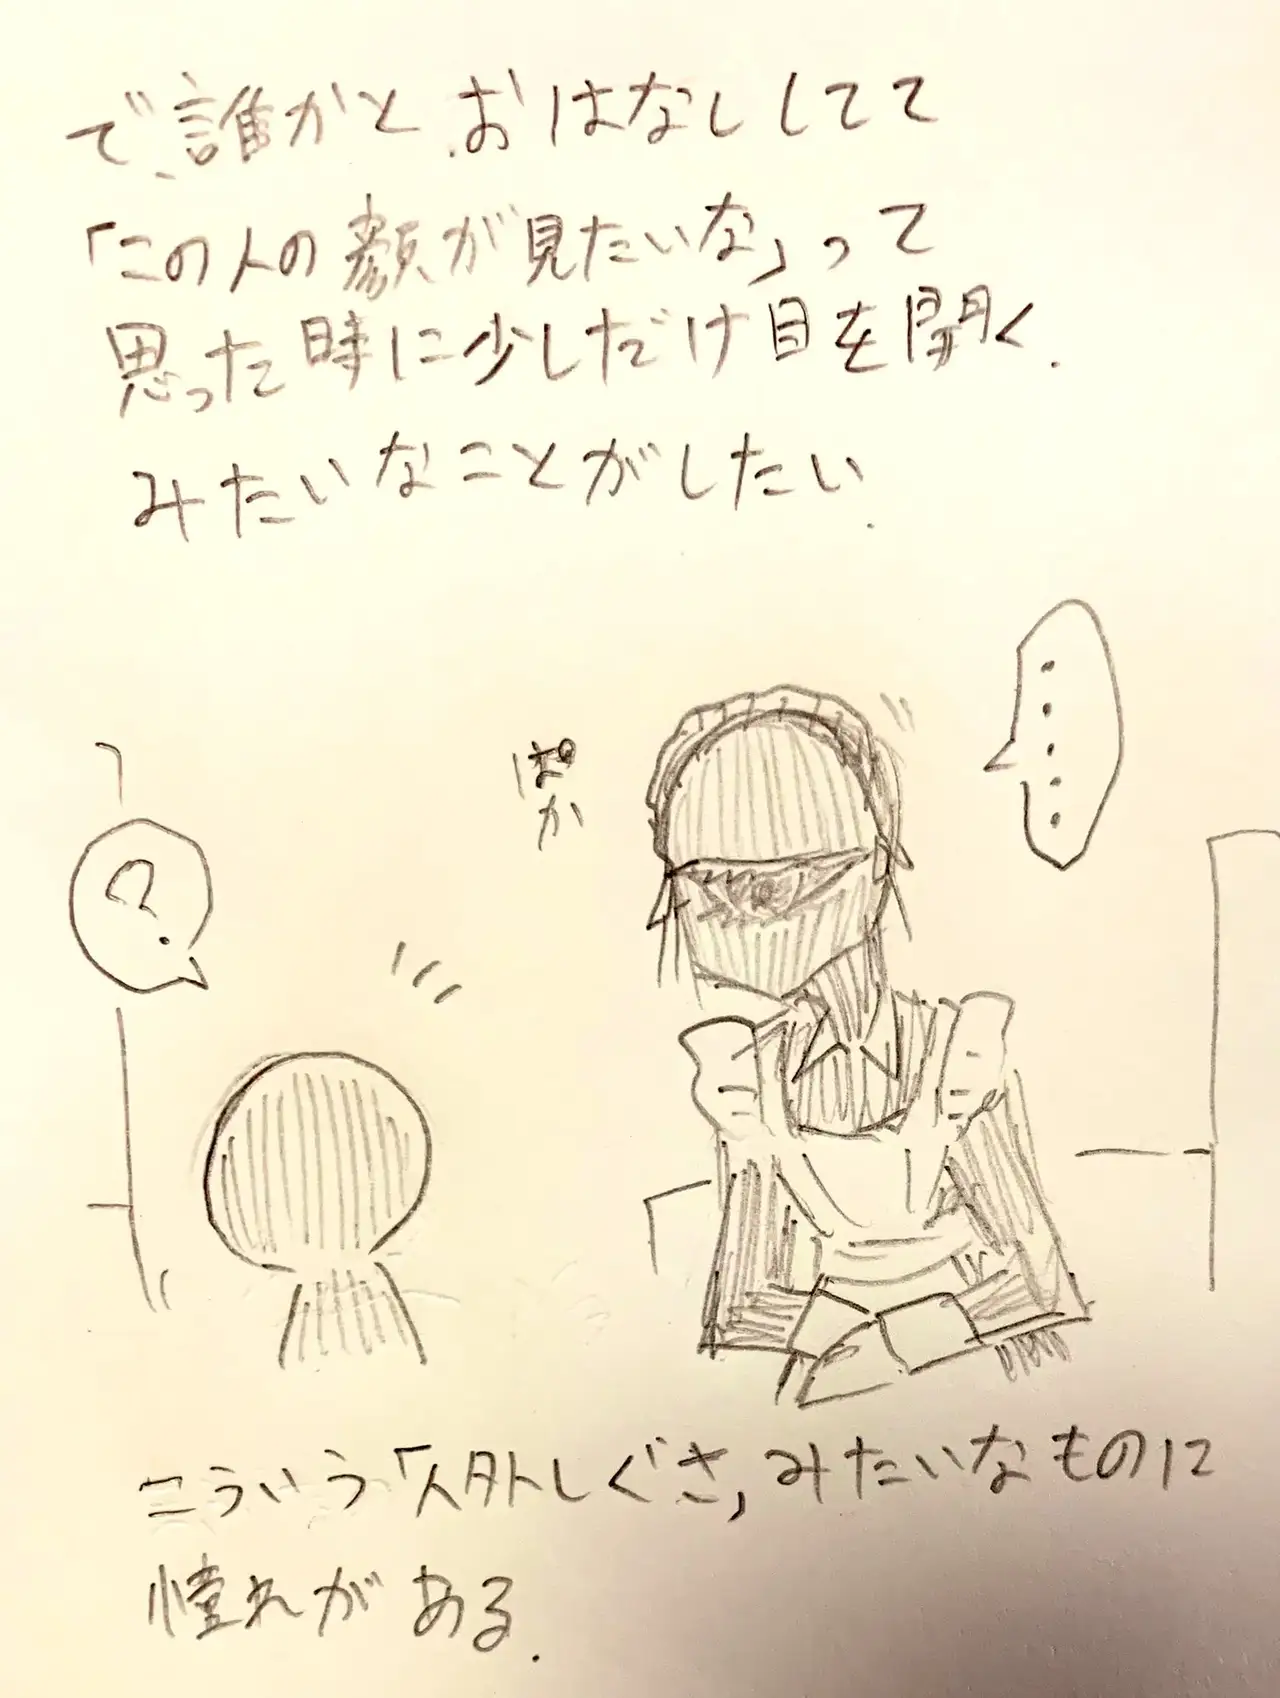 で、誰かと おはなししてて
「この人の顔が見たいな」って
思った時に少しだけ目を開く.
みたいなことがしたい.
・・・・・
ぱか
?
こういう「人外しぐさ」みたいなものに
憧れがある.